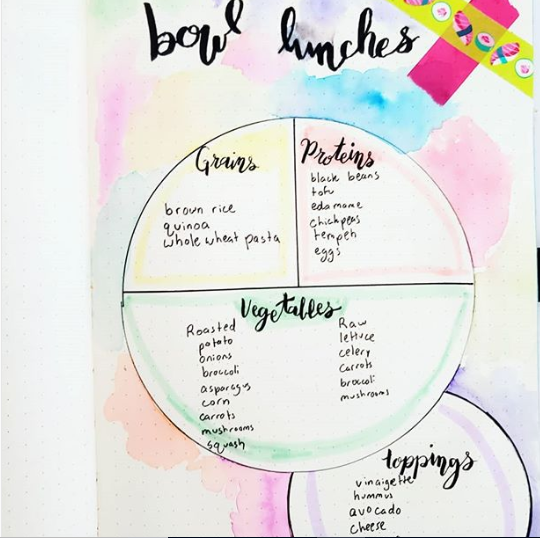 bowl lunches
Grains
brown rice
quinoa
whole wheat pasta
Proteins
black beans
tofu
edamame
chickpeas
tempeh
eggs
Vegetables
Roasted
potato
onions
broccoli
asparagus
corn
carrots
mushrooms
squash
Raw
lettuce
celery
carrots
broccoli
mushrooms
toppings
vinaigette
hummus
avocado
cheese